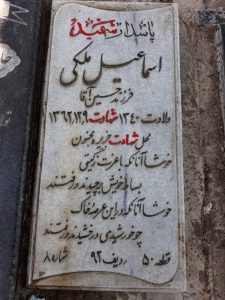 پاسدار شهید
اسماعیل ملکی
فرزند حسین آقا
ولادت ۱۳۴۰ شهادت ۱۳۶۲،۱۲،۹
محل شهادت جزیره مجنون
خوشا آنانکه با عزت ز گیتی
بساط خویش برچیدند و رفتند
خوشا آنانکه در این عرصه خاک
چو خورشیدی درخشیدند و رفتند
قطعه ۵۰ ردیف ۹۲ شماره ۸